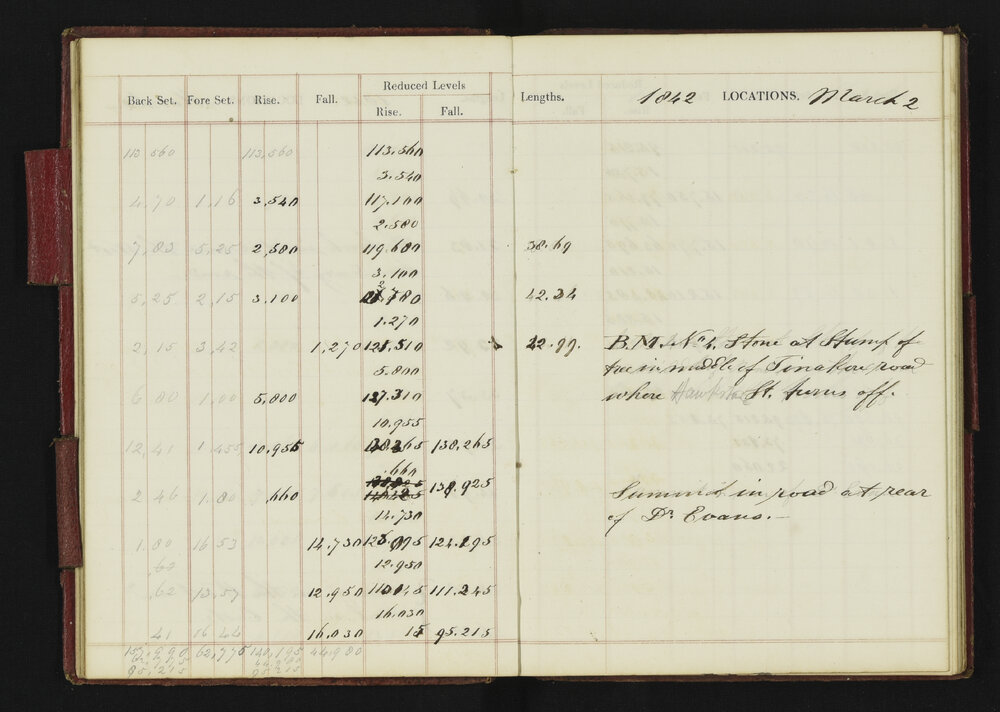 Reduced Levels
Back Set. Fore Set. Rise. Fall. Rise. Fall. Lengths. 1842 LOCATIONS. March 2
113,560 113,560 113.560
3.540
4,70 1,16 3,540 117.100
2.580
7,83 5,25 2,580 119.680 38.69
3.100
5,25 2,15 3.100 780 42.34
1.270
2,15 3,42 1,270 121.510 22.99. B.M. No 4. Stone at Stump of
5.800 tree in middle of Tinakore road
6 80 1,00 5,800 127.310 where Hawkstone St. turns off.
10.955
12,41 1 455 10,955 138.265
.660
2 46 1.80 ,660 138.925 Summit in road at rear
14.730 of Dr. Evans.—
1.80 16 53 14.730 124.195
12.950
,62 13,57 12.950 111.245
16.030
41 16 44 16.030 95.215
157,990 62,775 140,195 44,980
62,775 44,980
95,215 95,215